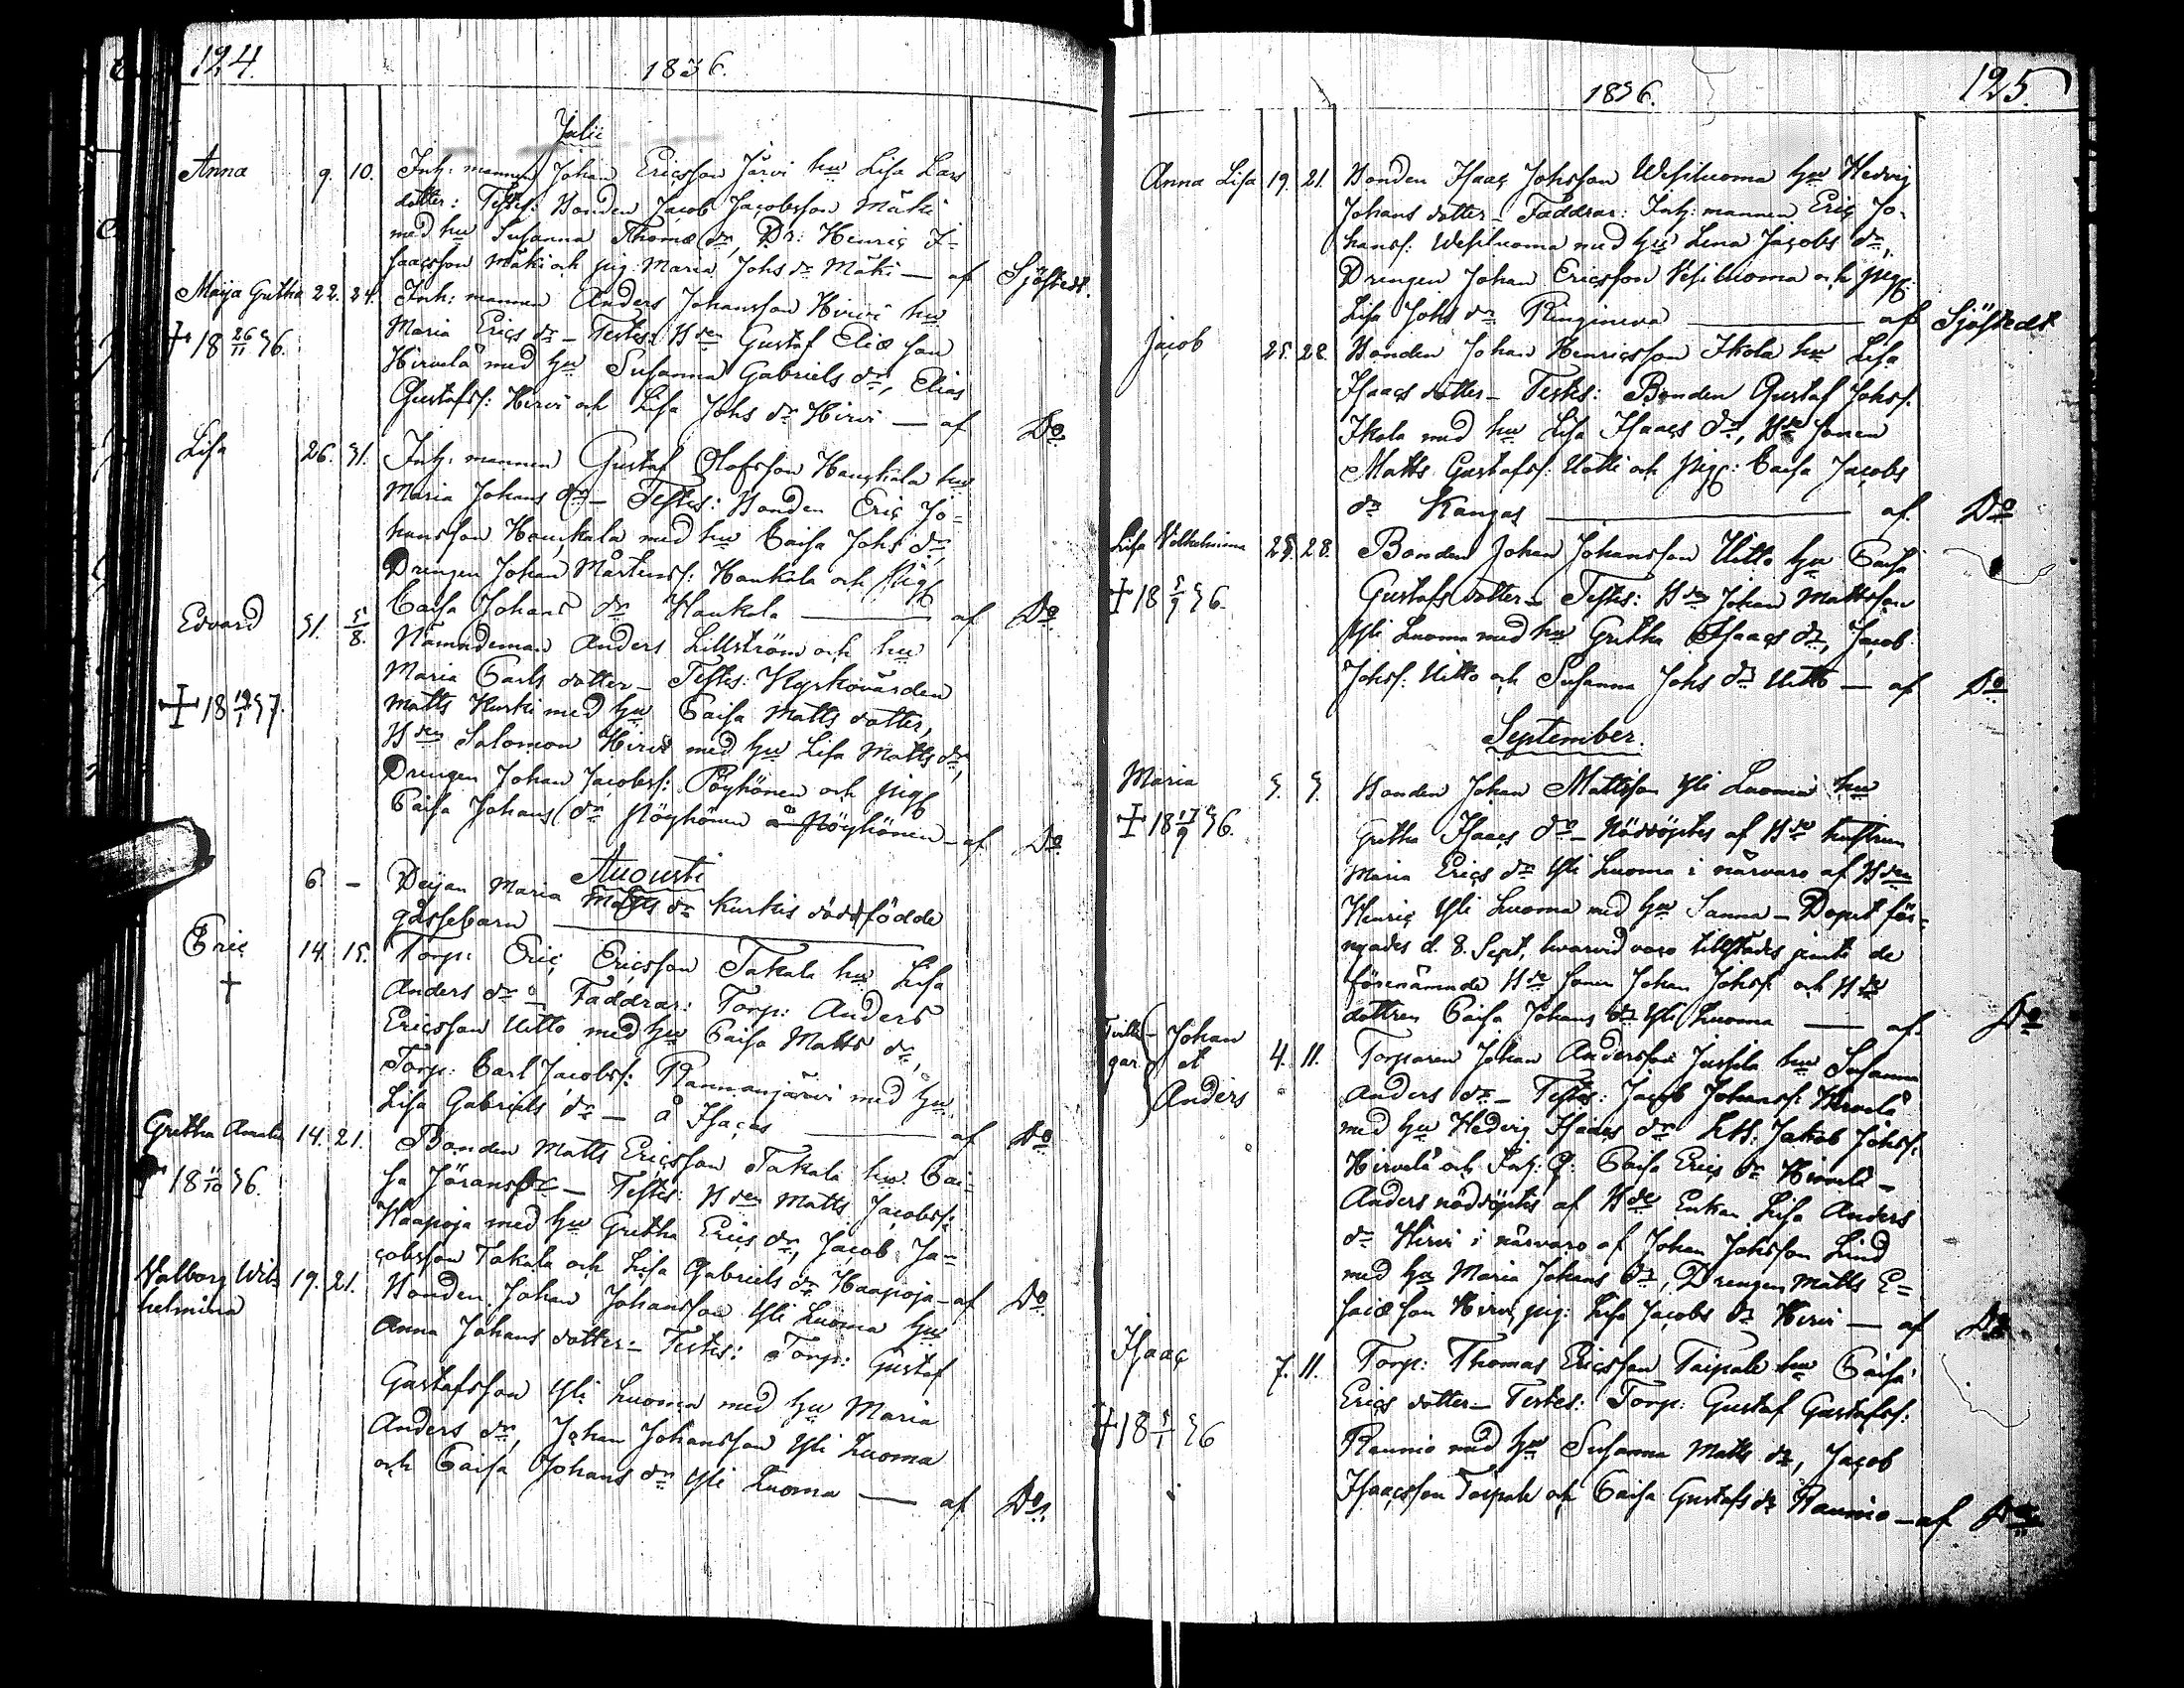 124.
1836.
Julii
Anna 9. 10. Inh: mannen Johan Ericsson Järvi hu Lisa Lars
dotter: Testes: Bonden Jacob Jacobsson Mäki
med hu Susanna Thomæ dr, Dr: Henric I-
saacsson Mäki och pig: Maria Johs dr Mäki — af Sjöstedt.
Maija Gretha 22. 24. Inh: mannen Anders Johansson Hirvi hu
Maria Erics dr — Testes: Bden Gustaf Eliæ son
† 18 26/11 36.
Hirvelä med hu Susanna Gabriels dr, Elias
Gustafss: Hirvi och Lisa Johs dr Hirvi — af Do
Lisa 26. 31. Inh: mannen Gustaf Olofsson Haukkala hu
Maria Johans dr — Testes: Bonden Eric Jo=
hansson Haukkala med hu Caisa Johs dr,
Drengen Johan Mårtenss: Haukala och pig:
Caisa Johans dr Haukala — af Do
Edvard 31. 5/8. Nämndeman Anders Lillström och hu
Maria Carls dotter — Testes: Kyrkovärden
† 18 19/1 37.
Matts Kurki med hu Caisa Matts dotter,
Bden Salomon Hirvi med hu Lisa Matts dr,
Drengen Johan Jacobss: Pöyhönen och pig:
Caisa Johans dr Pöyhönen å Pöyhönen — af Do
Augusti
6. — Deijan Maria Matts dr Kurkis dödfödde
gåssebarn
Eric 14. 15. Torp: Eric Ericsson Takala hu Lisa
†
Anders dr — Faddrar: Torp: Anders
Ericsson Uitto med hu Caisa Matts dr,
Torp: Carl Jacobss: Rannanjärvi med hu
Lisa Gabriels dr — å Isacas — af Do
Gretha Amalia 14. 21. Bonden Matts Ericsson Takala hu Cai-
sa Jörans dr — Testes: Bden Matts Jacobss:
† 18 /10 36.
Haapoja med hu Gretha Erics dr, Jacob Ja-
cobsson Takala och Lisa Gabriels dr Haapoja — af Do
Valborg Wil-
helmina 19. 21. Bonden Johan Johansson Yli Luoma hu
Anna Johans dotter — Testes: Torp: Gustaf
Gustafsson Yli Luoma med hu Maria
Anders dr, Johan Johansson Yli Luoma
och Caisa Johans dr Yli Luoma — af Do
1836.
125.
Anna Lisa 19. 21. Bonden Isaac Johsson Wesiluoma hu Hedvig
Johans dotter — Faddrar: Inh: mannen Eric Jo-
hanss: Wesiluoma med hu Lena Jacobs dr,
Drengen Johan Ericsson Vesiluoma och pig:
Lisa Johs dr Ringineva — af Sjöstedt
Jacob 25. 28. Bonden Johan Henricsson Ikola hu Lisa
Isaacs dotter — Testes: Bonden Gustaf Johss.
Ikola med hu Lisa Isaacs dr, Bde sonen
Matts Gustafss: Uotti och pig: Caisa Jacobs
dr Kangas — af Do
Lisa Vilhelmina 25. 28. Bonden Johan Johansson Uitto hu Caisa
† 18 5/9 36.
Gustafs dotter — Testes: Bden Johan Mattsson
Yli Luoma med hu Gretha Isaacs dr, Jacob
Johss: Uitto och Susanna Johs dr Uitto — af Do
September.
Maria 3. 3. Bonden Johan Mattsson Yli Luoma hu
† 18 17/9 36.
Gretha Isaacs dr — Nöddöptes af Bde hustrun
Maria Erics dr Yli Luoma i närvaro af Bden
Henric Yli Luoma med hu Sanna — Dopet för-
nyades d. 8. Sept, hvarvid voro tillstädes jemte de
förenämnde Bde sonen Johan Johss: och Bde
dottren Caisa Johans dr Yli Luoma — af Do
Tvillin-
gar. Johan
et
Anders
4. 11. Torparen Johan Andersson Jussila hu Susanna
Anders dr — Testes: Jacob Johanss: Hirvelä
med hu Hedvig Isaacs dr Jakob Johss:
Hirvelä och Inh: Q: Caisa Erics dr Hirvelä —
Anders nöddöptes af Bde Enkan Lisa Anders
dr Hirvi i närvaro af Johan Johsson Lind
med hu Maria Johans dr, Drengen Matts E-
saiæ son Hirvi, pig: Lisa Jacobs dr Hirvi — af Do
Isaac 7. 11. Torp: Thomas Ericsson Taipale hu Caisa
Erics dotter — Testes: Torp: Gustaf Gustafss:
† 18 36
Raunio med hu Susanna Matts dr, Jacob
Isaacsson Taipale och Caisa Gustafs dr Raunio — af Do